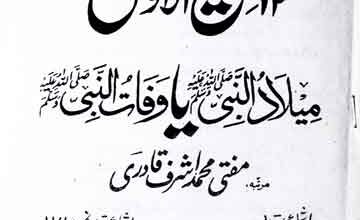 ۱۲ ربیع الاول
میلاد النبی ﷺ یا وفات النبی ﷺ
مرتبہ: مفتی محمد اشرف قادری